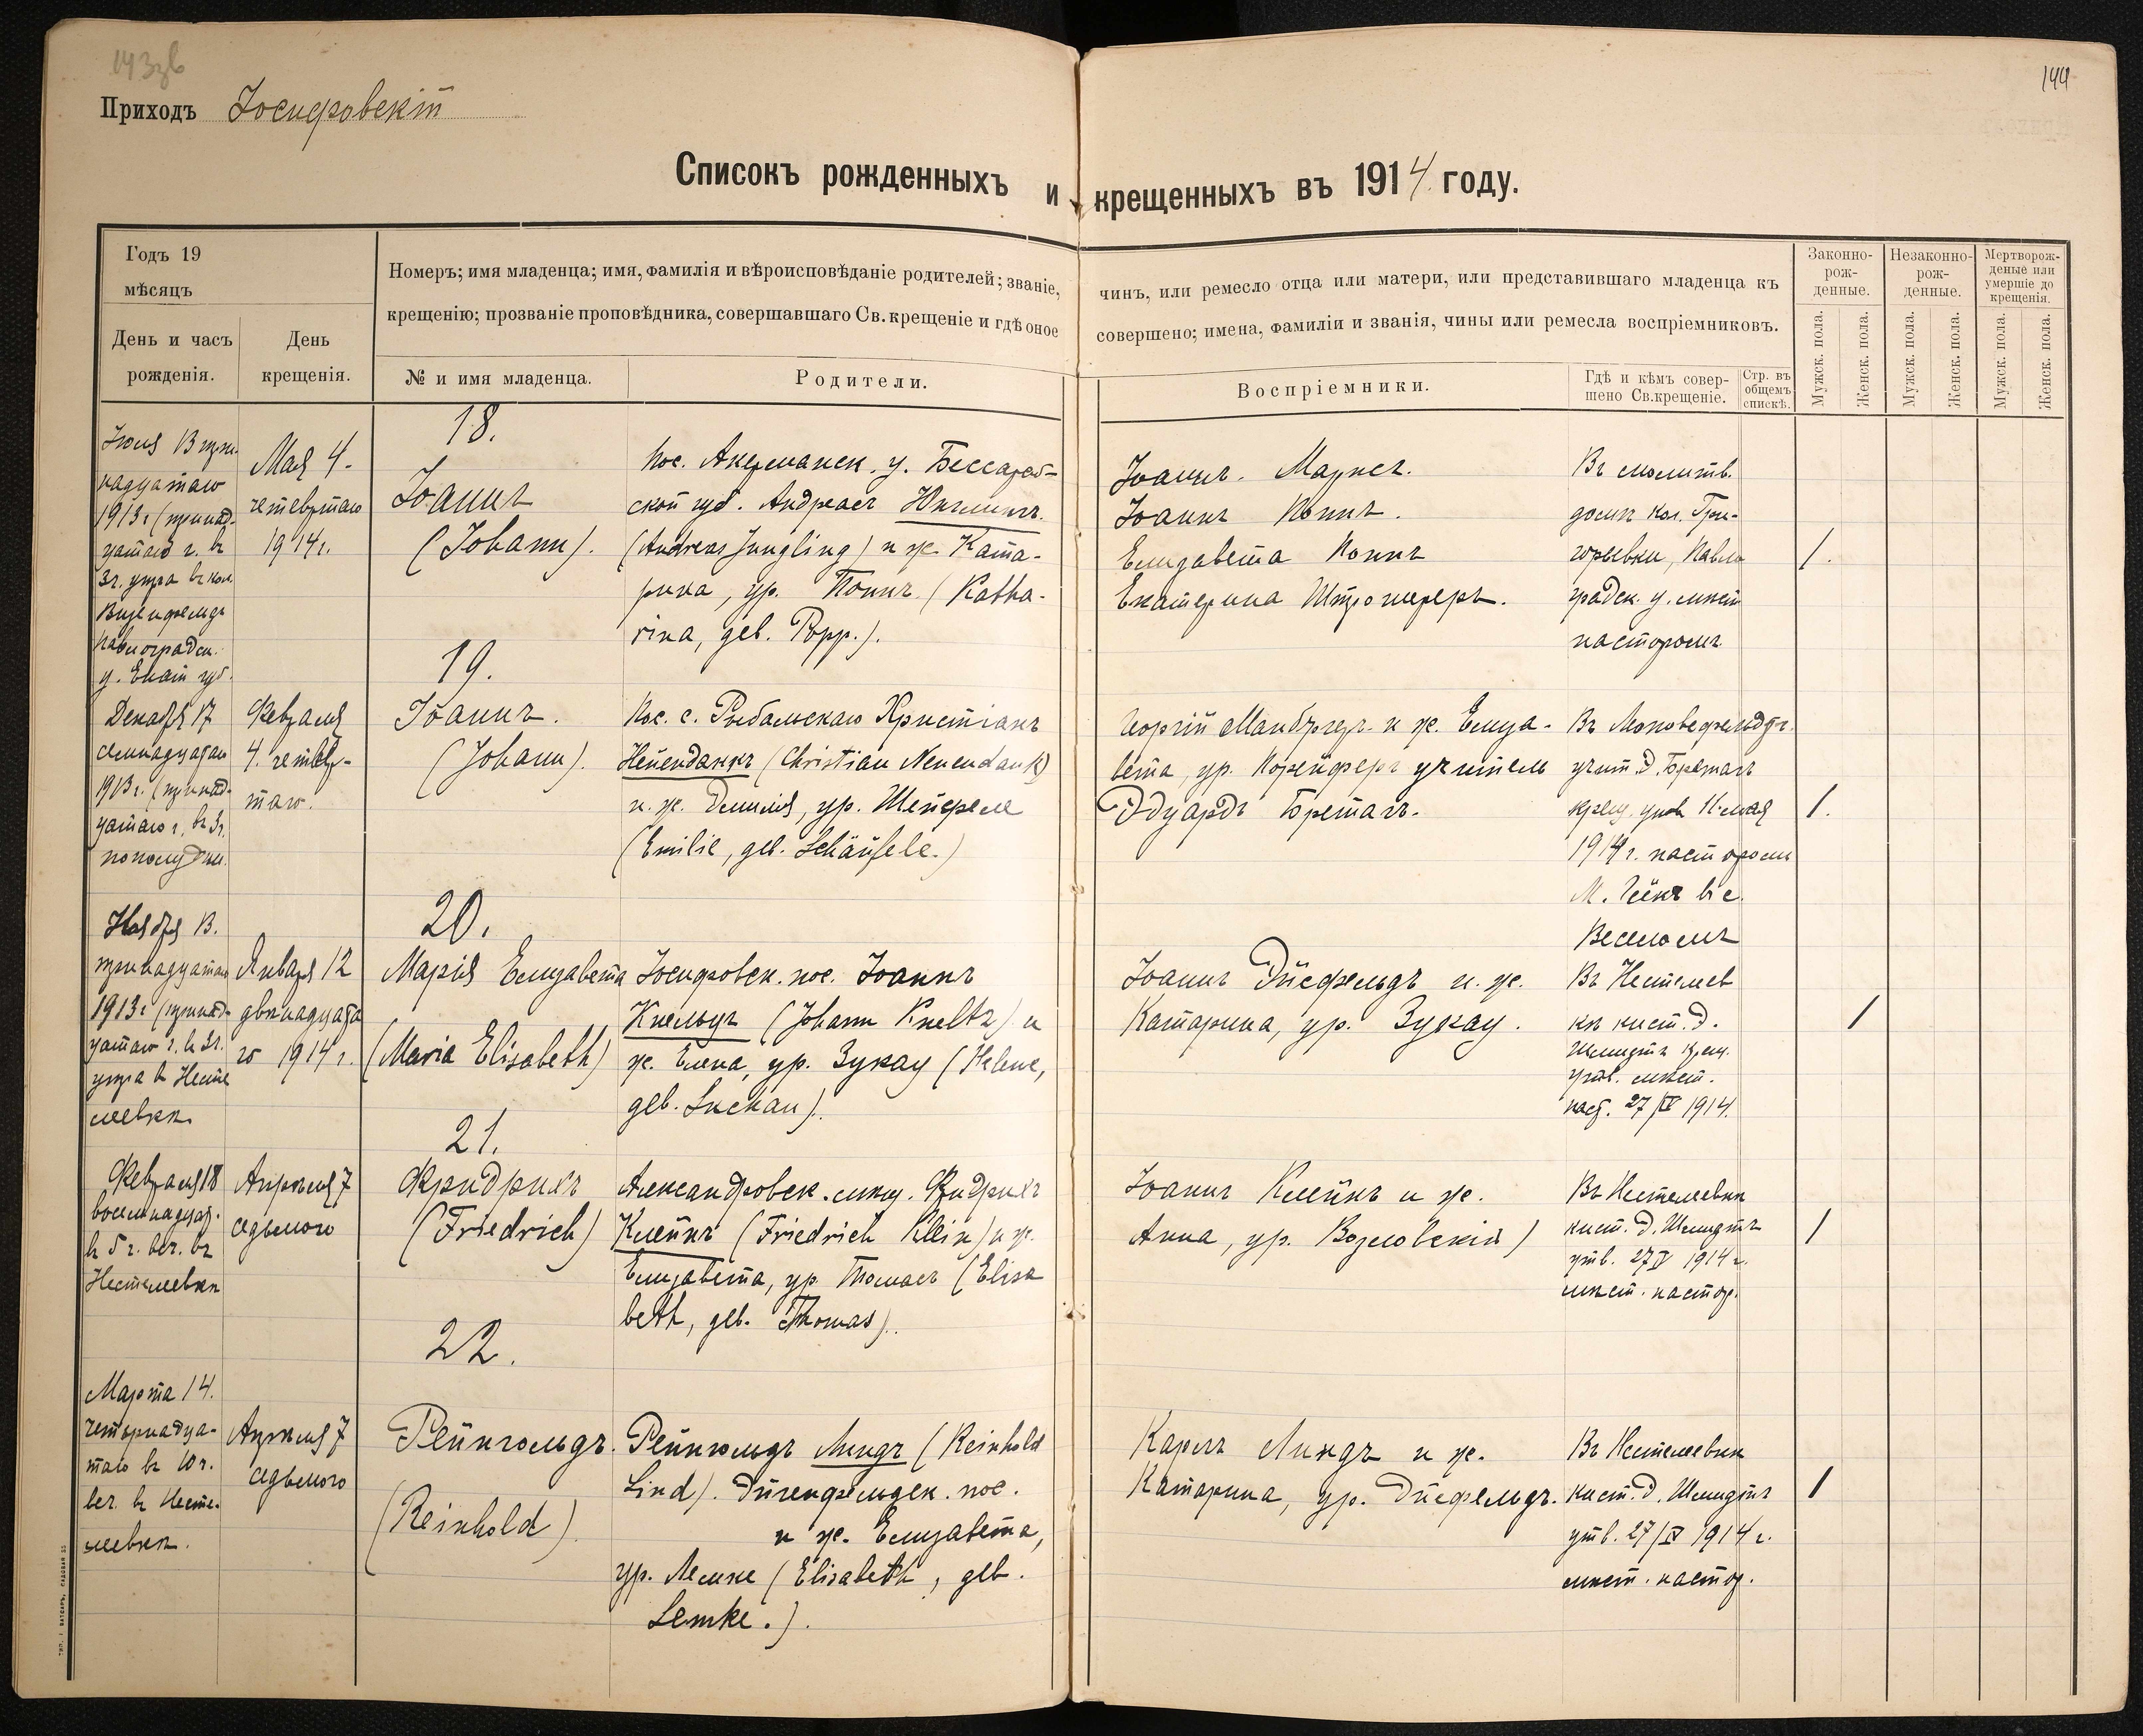 143зв
144
Приходъ Іосифовскій
Списокъ рожденныхъ и крещенныхъ въ 1914 году.
Годъ 19
мѣсяцъ
День и часъ
рожденія.
День
крещенія.
Номеръ; имя младенца; имя, фамилія и вѣроисповѣданіе родителей; званіе,
крещенію; прозваніе проповѣдника, совершавшаго Св. крещеніе и гдѣ оное
№ и имя младенца.
Родители.
чинъ, или ремесло отца или матери, или представившаго младенца къ
совершено; имена, фамиліи и званія, чины или ремесла воспріемниковъ.
Воспріемники.
Гдѣ и кѣмъ совер-
шено Св.крещеніе.
Стр. въ
общемъ
спискѣ.
Законно-
рож-
денные.
Незаконно-
рож-
денные.
Мертворож-
деные или
умершіе до
крещенія.
Мужск. пола.
Женск. пола.
Мужск. пола.
Женск. пола.
Мужск. пола.
Женск. пола.
надцатаго
1913 г. (тринад-
цатаго г. въ
3 ч. утра въ кол.
Визенфельдъ
Павлоградск.
у. Екат. губ.
Мая 4.
четвертаго
1914 г.
18.
Іоаннъ
(Johann).
пос. Акерманск. у. Бессараб-
ской губ. Андреасъ Юнглингъ
(Andreas Jungling) и ж. Ката-
рина, ур. Поппъ (Katha-
rina, geb. Popp.).
Іоаннъ Марксъ.
Іоаннъ Поппъ.
Елизавета Поппъ
Екатерина
Въ молитв.
домѣ кол. Гри-
горьевки, Павло
градск. у. мѣст
пасторомъ.
1.
Декабря 17
семнадцатаго
1913 г. (тринад-
цатаго г. въ 3 ч.
пополудни.
Февраля
4. четвер-
таго.
19.
Іоаннъ.
(Johann).
пос. с. Рыбальскаго Христіанъ
Нейенданкъ (Christian Neuendank)
и ж. Эмилія, ур. Шейфеле
(Emilie, geb. Schäufele.)
Георгій и ж. Елиза-
вета, ур. учитель
Эдуардъ Бретагъ.
Въ
учит. Э. Бретагъ
крещ. утв. 11 мая
1914 г. пасторомъ
въ с.
Веселомъ
1.
Ноября 13.
тринадцатаго
1913 г. (тринад-
цатаго г. въ 3 ч.
утра въ Несте
левкѣ.
Января 12
двѣнадцата
го 1914 г.
20.
Марія Елизавета
(Maria Elisabeth)
Іосифовск. пос. Іоаннъ
Кнельцъ (Johann Kneltz) и
ж. Елена, ур. Зукау (Helene,
geb. Suckau).
Іоаннъ Дисфельдъ и ж.
Катарина, ур. Зукау.
Въ Нестелев
кѣ кист. Д.
Шмидтъ крещ.
утв. мѣст.
паст. 27/IV 1914.
1
Февраля 18
восемнадцат.
въ 5 ч. веч. въ
Нестелевкѣ
Апрѣля 7
седьмого
21.
Фридрихъ
(Friedrich)
Александровск. мѣщ. Фридрихъ
Клейнъ (Friedrich Klein) и ж.
Елизавета, ур. Томасъ (Elisa
beth, geb. Thomas).
Іоаннъ Клейнъ и ж.
Анна, ур. Козловскія)
Въ Нестелевкѣ
кист. Д. Шмидтъ
утв. 27 IV 1914 г.
мѣст. пастор.
1
Марта 14.
четырнадца-
таго въ 10 ч.
веч. въ Несте-
левкѣ.
Апрѣля 7
седьмого
22.
Рейнгольдъ.
(Reinhold)
Рейнгольдъ Линдъ (Reinhold
Lind). пос.
и ж. Елизавета,
ур. Лемке (Elisabeth, geb.
Lemke.).
Карлъ Линдъ и ж.
Катарина, ур. Дисфельдъ.
Въ Нестелевкѣ
кист. Д. Шмидтъ
утв. 27/IV 1914 г.
мѣст. пастор.
1